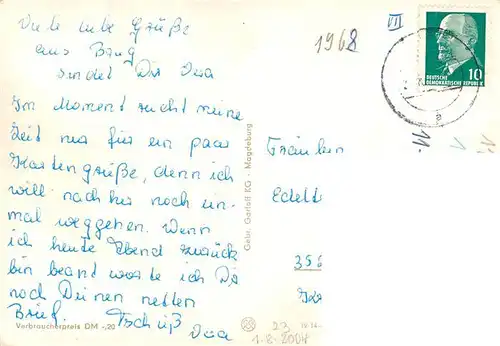 Viele liebe Grüße
aus Burg
sendet Dir Ina
Im Moment reicht meine
Zeit nur für ein paar
Kartengrüße, denn ich
will nachher noch ein-
mal weggehen. Wenn
ich heute Abend zurück
bin beantworte ich Dir
noch Deinen netten
Brief. Tschüß
Ina
Verbraucherpreis DM -,20
Gebr. Garloff KG - Magdeburg
1968
VII
10
DEUTSCHE
DEMOKRATISCHE REPUBLIK
11.-
1
Fräulein
Edelt
356
23
1-8-2004